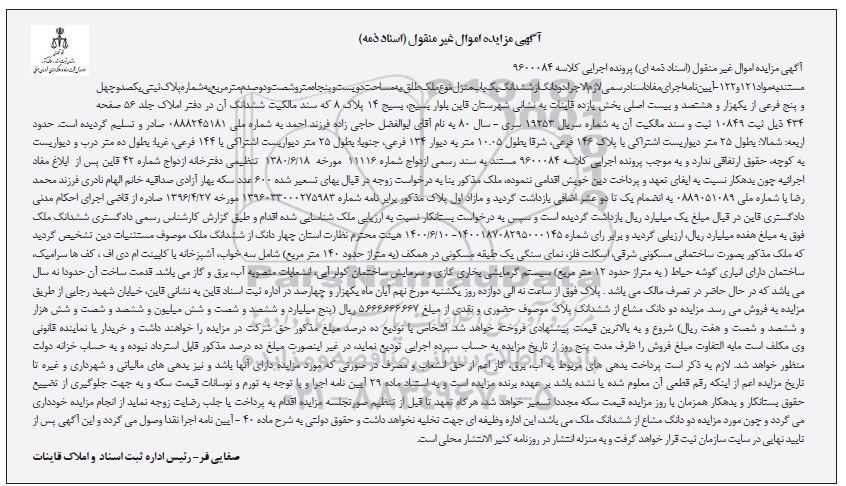 آگهی مزایده اموال غیر منقول (اسناد ذمه)
آگهی مزایده اموال غیر منقول (اسناد ذمه ای) پرونده اجرایی کلاسه ۹۶۰۰۰۸۴
مستند به مواد ۱۲۱ و ۱۲۲ - آیین نامه اجرای مفاد اسناد رسمی لازم الاجرا دو دانگ از ششدانگ یک باب منزل نوع ملک طلق به مساحت دویست و پنجاه متر و شصت و دو صدم متر مربع به شماره پلاک ثبتی یکصد و چهل
و پنج فرعی از یکهزار و هشتصد و بیست اصلی بخش یازده قاینات به نشانی شهرستان قاین بلوار بسیج، بسیج ۱۴ پلاک ۸ که سند مالکیت ششدانگ آن در دفتر املاک جلد ۵۶ صفحه
۴۳۴ ذیل ثبت ۱۰۸۴۹ ثبت و سند مالکیت آن به شماره سریال ۱۹۲۵۳ سری - سال ۸۰ به نام آقای ابوالفضل حاجی زاده فرزند احمد به شماره ملی ۰۸۸۸۲۴۵۱۸۱ صادر و تسلیم گردیده است. حدود
اربعه: شمالا: بطول ۲۵ متر دیواریست اشتراکی با پلاک ۱۴۶ فرعی، شرقا بطول ۱۰.۰۵ متر به دیوار ۱۳۴ فرعی، جنوبا: بطول ۲۵ متر دیواریست اشتراکی با ۱۴۴ فرعی، غربا: بطول ده متر درب و دیواریست
به کوچه، حقوق ارتفاقی ندارد و به موجب پرونده اجرایی کلاسه ۹۶۰۰۰۸۴ مستند به سند رسمی ازدواج شماره ۱۱۱۱۶ مورخه ۱۳۸۰/۶/۱۸ تنظیمی دفترخانه ازدواج شماره ۴۲ قاین پس از ابلاغ مفاد
اجرائیه چون بدهکار نسبت به ایفای تعهد و پرداخت دین خویش اقدامی ننموده، ملک مذکور بنا به درخواست زوجه در قبال بهای تسعیر شده ۶۰۰ عدد سکه بهار آزادی صداقیه خانم الهام نادری فرزند محمد
رضا با شماره ملی ۰۸۸۹۰۵۱۰۸۹ به انضمام یک تا دو عشر اضافی بازداشت گردید و مازاد اول پلاک مذکور برابر نامه شماره ۱۳۹۶۰۳۳۰۰۰۲۷۵۹۸۳ مورخه ۱۳۹۶/۴/۲۷ صادره از قاضی اجرای احکام مدنی
دادگستری قاین در قبال مبلغ یک میلیارد ریال بازداشت گردیده است و سپس به درخواست بستانکار نسبت به ارزیابی ملک شناسایی شده اقدام و طبق گزارش کارشناس رسمی دادگستری ششدانگ ملک
فوق به مبلغ هفده میلیارد ریال، ارزیابی گردید و برابر رای شماره ۱۴۰۰۱۸۷۰۸۲۹۵۰۰۰۱۴۵ - ۱۴۰۰/۶/۱۰ هیئت محترم نظارت استان چهار دانگ از ششدانگ ملک موصوف مستثنیات دین تشخیص گردید
که ملک مذکور بصورت ساختمانی مسکونی شرقی، اسکلت فلز، نمای سنگی یک طبقه مسکونی در همکف (به متراژ حدود ۱۴۰ متر مربع) شامل سه خواب، آشپزخانه با کابینت ام دی اف، کف ها سرامیک،
ساختمان دارای انباری گوشه حیاط ( به متراژ حدود ۱۲ متر مربع) سیستم گرمایشی بخاری گازی و سرمایش ساختمان کولر آبی، انشعابات منصوبه آب، برق و گاز می باشد. قدمت ساخت آن حدودا نه سال
می باشد که در حال حاضر در تصرف مالک می باشد . پلاک فوق از ساعت نه الی دوازده روز یکشنبه مورخ نهم آبان ماه یکهزار و چهارصد در اداره ثبت اسناد قاین به نشانی قاین، خیابان شهید رجایی از طریق
مزایده به فروش می رسد. مزایده دو دانگ مشاع از ششدانگ پلاک موصوف حضوری و نقدی از مبلغ ۵۶۶۶۶۶۶۶۶۷ ریال (پنج میلیارد و ششصد و شصت و شش میلیون و ششصد و شصت و شش هزار
و ششصد و شصت و هفت ریال) شروع و به بالاترین قیمت پیشنهادی فروخته خواهد شد. اشخاص با تودیع ده درصد مبلغ مذکور حق شرکت در مزایده را خواهند داشت و خریدار یا نماینده قانونی
وی مکلف است مابه التفاوت مبلغ فروش را ظرف مدت پنج روز از تاریخ مزایده به حساب سپرده اجرایی تودیع نماید، در غیر اینصورت مبلغ ده درصد مذکور قابل استرداد نبوده و به حساب خزانه دولت
منظور خواهد شد. لازم به ذکر است پرداخت بدهی های مربوط به آب، برق، گاز اعم از حق انشعاب و مصرف در صورتی که مورد مزایده دارای آنها باشد و نیز بدهی های مالیاتی و شهرداری و غیره تا
تاریخ مزایده اعم از اینکه رقم قطعی آن معلوم شده یا نشده باشد بر عهده برنده مزایده است و به استناد ماده ۲۹ آیین نامه اجرا و با توجه به تورم و نوسانات قیمت سکه و به جهت جلوگیری از تضییع
حقوق بستانکار و بدهکار همزمان با روز مزایده قیمت سکه مجددا تسعیر خواهد شد، هرگاه تعهد تا قبل از تنظیم صورتجلسه مزایده اقدام به پرداخت یا جلب رضایت زوجه نماید از انجام مزایده خودداری
می گردد و چون مورد مزایده دو دانگ مشاع از ششدانگ ملک می باشد، این اداره وظیفه ای جهت تخلیه نخواهد داشت و حقوق دولتی به شرح ماده ۴۰ - آیین نامه اجرا نقدا وصول می گردد و این آگهی پس از
تایید نهایی در سایت سازمان ثبت قرار خواهد گرفت و به منزله انتشار در روزنامه کثیر الانتشار محلی است.
صفایی فر - رئیس اداره ثبت اسناد و املاک قاینات